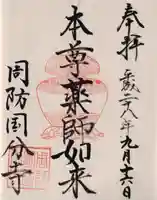 奉拝
平成二八年九月十六日
本尊薬師如来
周防国分寺